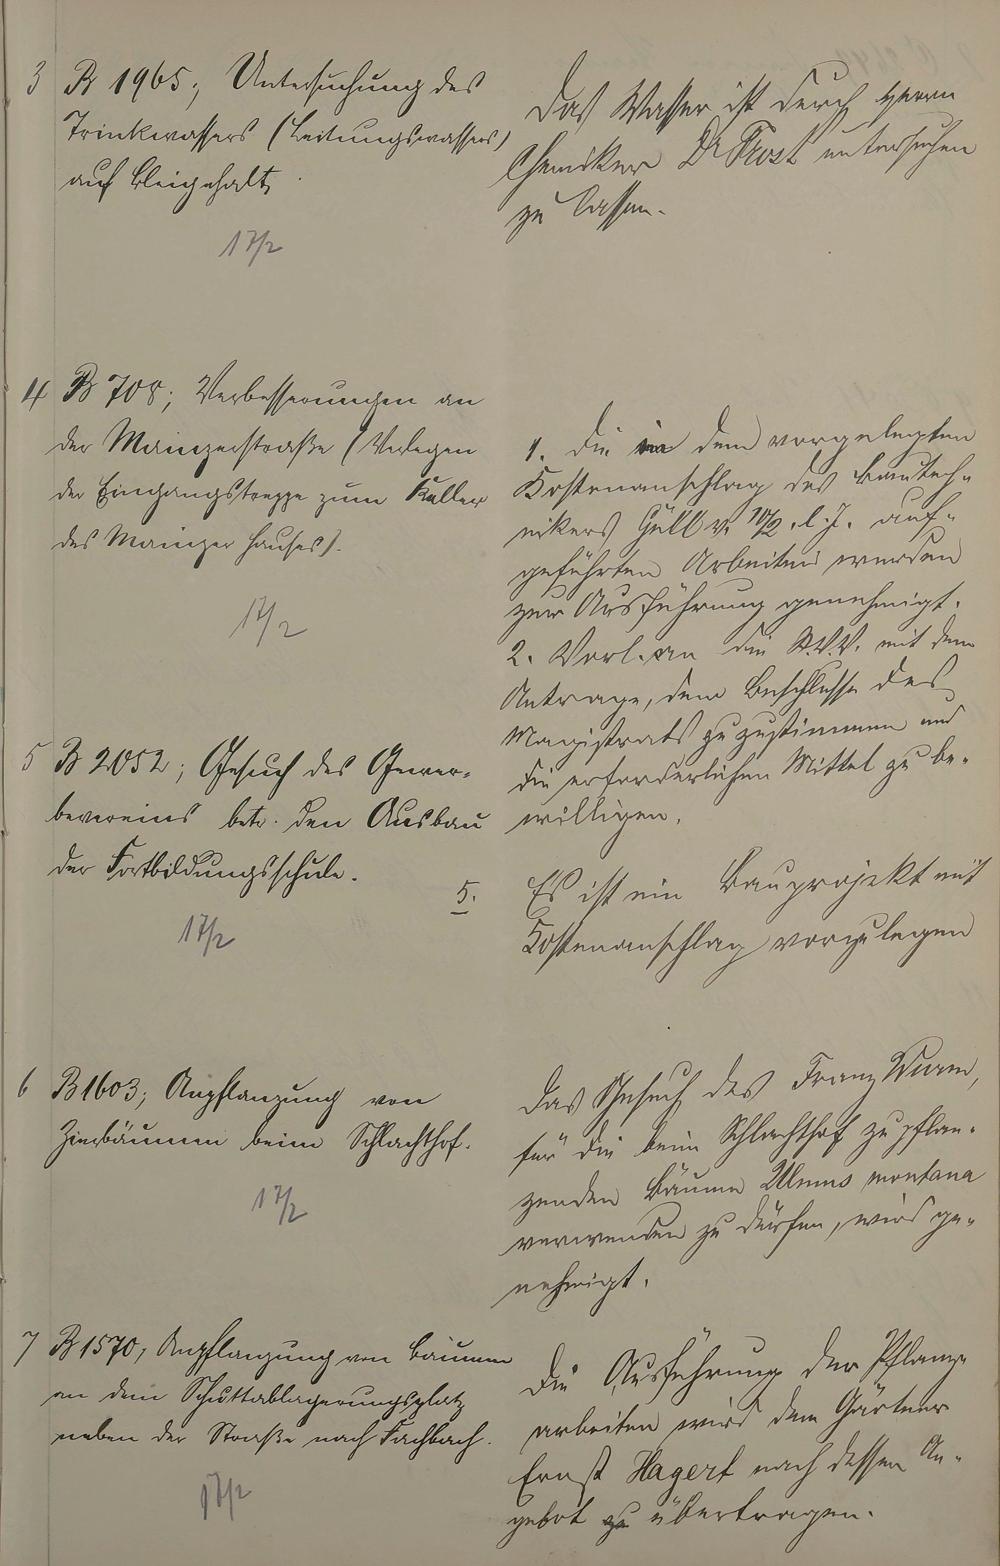 3 B 1965; Untersuchung des
Trinkwassers (Leitungswassers)
auf Bleigehalt.
17/2
Das Wasser ist durch Herrn
Chemiker Dr Frost untersuchen
zu lassen.
4 B 708; Verbesserungen an
der Mainzerstraße (Verlegen
der Eingangstreppe zum Keller
des Mainzer Hauses).
17/2
1. Die in dem vorgelegten
Kostenanschlag des Bautech-
nikers Güll v. 10/2. l. J. auf-
geführten Arbeiten werden
zur Ausführung genehmigt.
2. Vorl. an die St.V.V. mit dem
Antrage, dem Beschlusse des
Magistrats zuzustimmen und
die erforderlichen Mittel zu be-
willigen.
5 B 2052; Gesuch des Gewer-
bevereins betr. den Ausbau
der Fortbildungsschule.
17/2
5. Es ist ein Bauprojekt mit
Kostenanschlag vorzulegen
6 B 1603; Anpflanzung von
Zierbäumen beim Schlachthof.
17/2
Das Gesuch des Franz Wurm,
für die beim Schlachthof zu pflan-
zenden Bäume Ulmus montana
verwenden zu dürfen, wird ge-
nehmigt.
7 B 1570; Anpflanzung von Bäumen
an dem Schuttablagerungsplatz
neben der Straße nach Fachbach.
17/2
Die Ausführung der Pflanz-
arbeiten wird dem Gärtner
Ernst Hagert nach dessen An-
gebot zu übertragen.